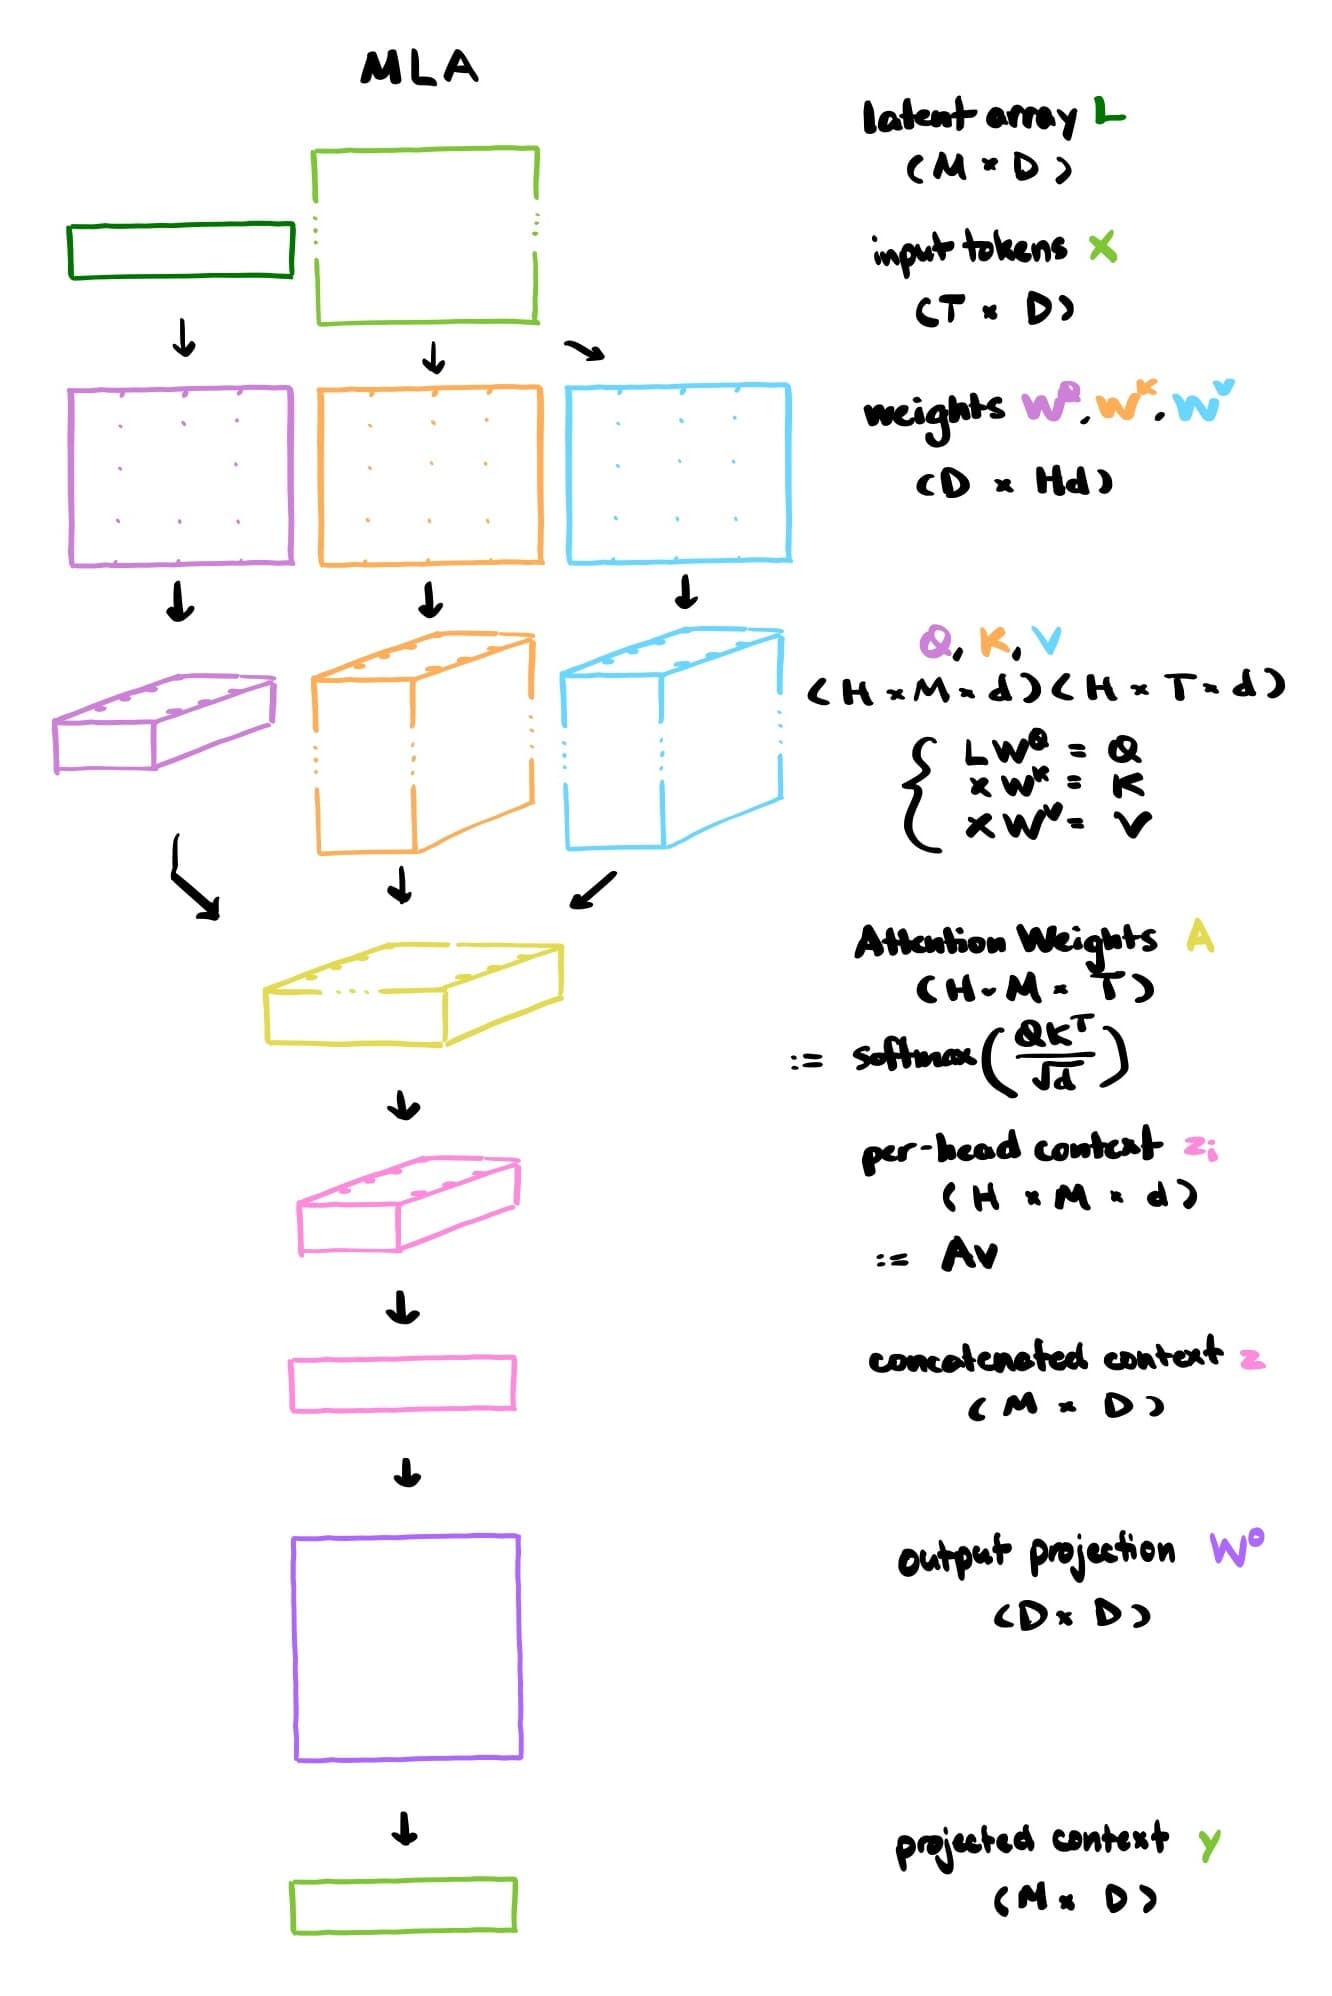 MLA
latent array L
(M × D)
input tokens X
(T × D)
weights W^Q, W^K, W^V
(D × Hd)
Q, K, V
(H × M × d) (H × T × d)
{ LW^Q = Q
XW^K = K
XW^V = V
Attention Weights A
(H × M × T)
:= softmax(QK^T / √d)
per-head context z_i
(H × M × d)
:= AV
concatenated context z
(M × D)
output projection W^O
(D × D)
projected context y
(M × D)